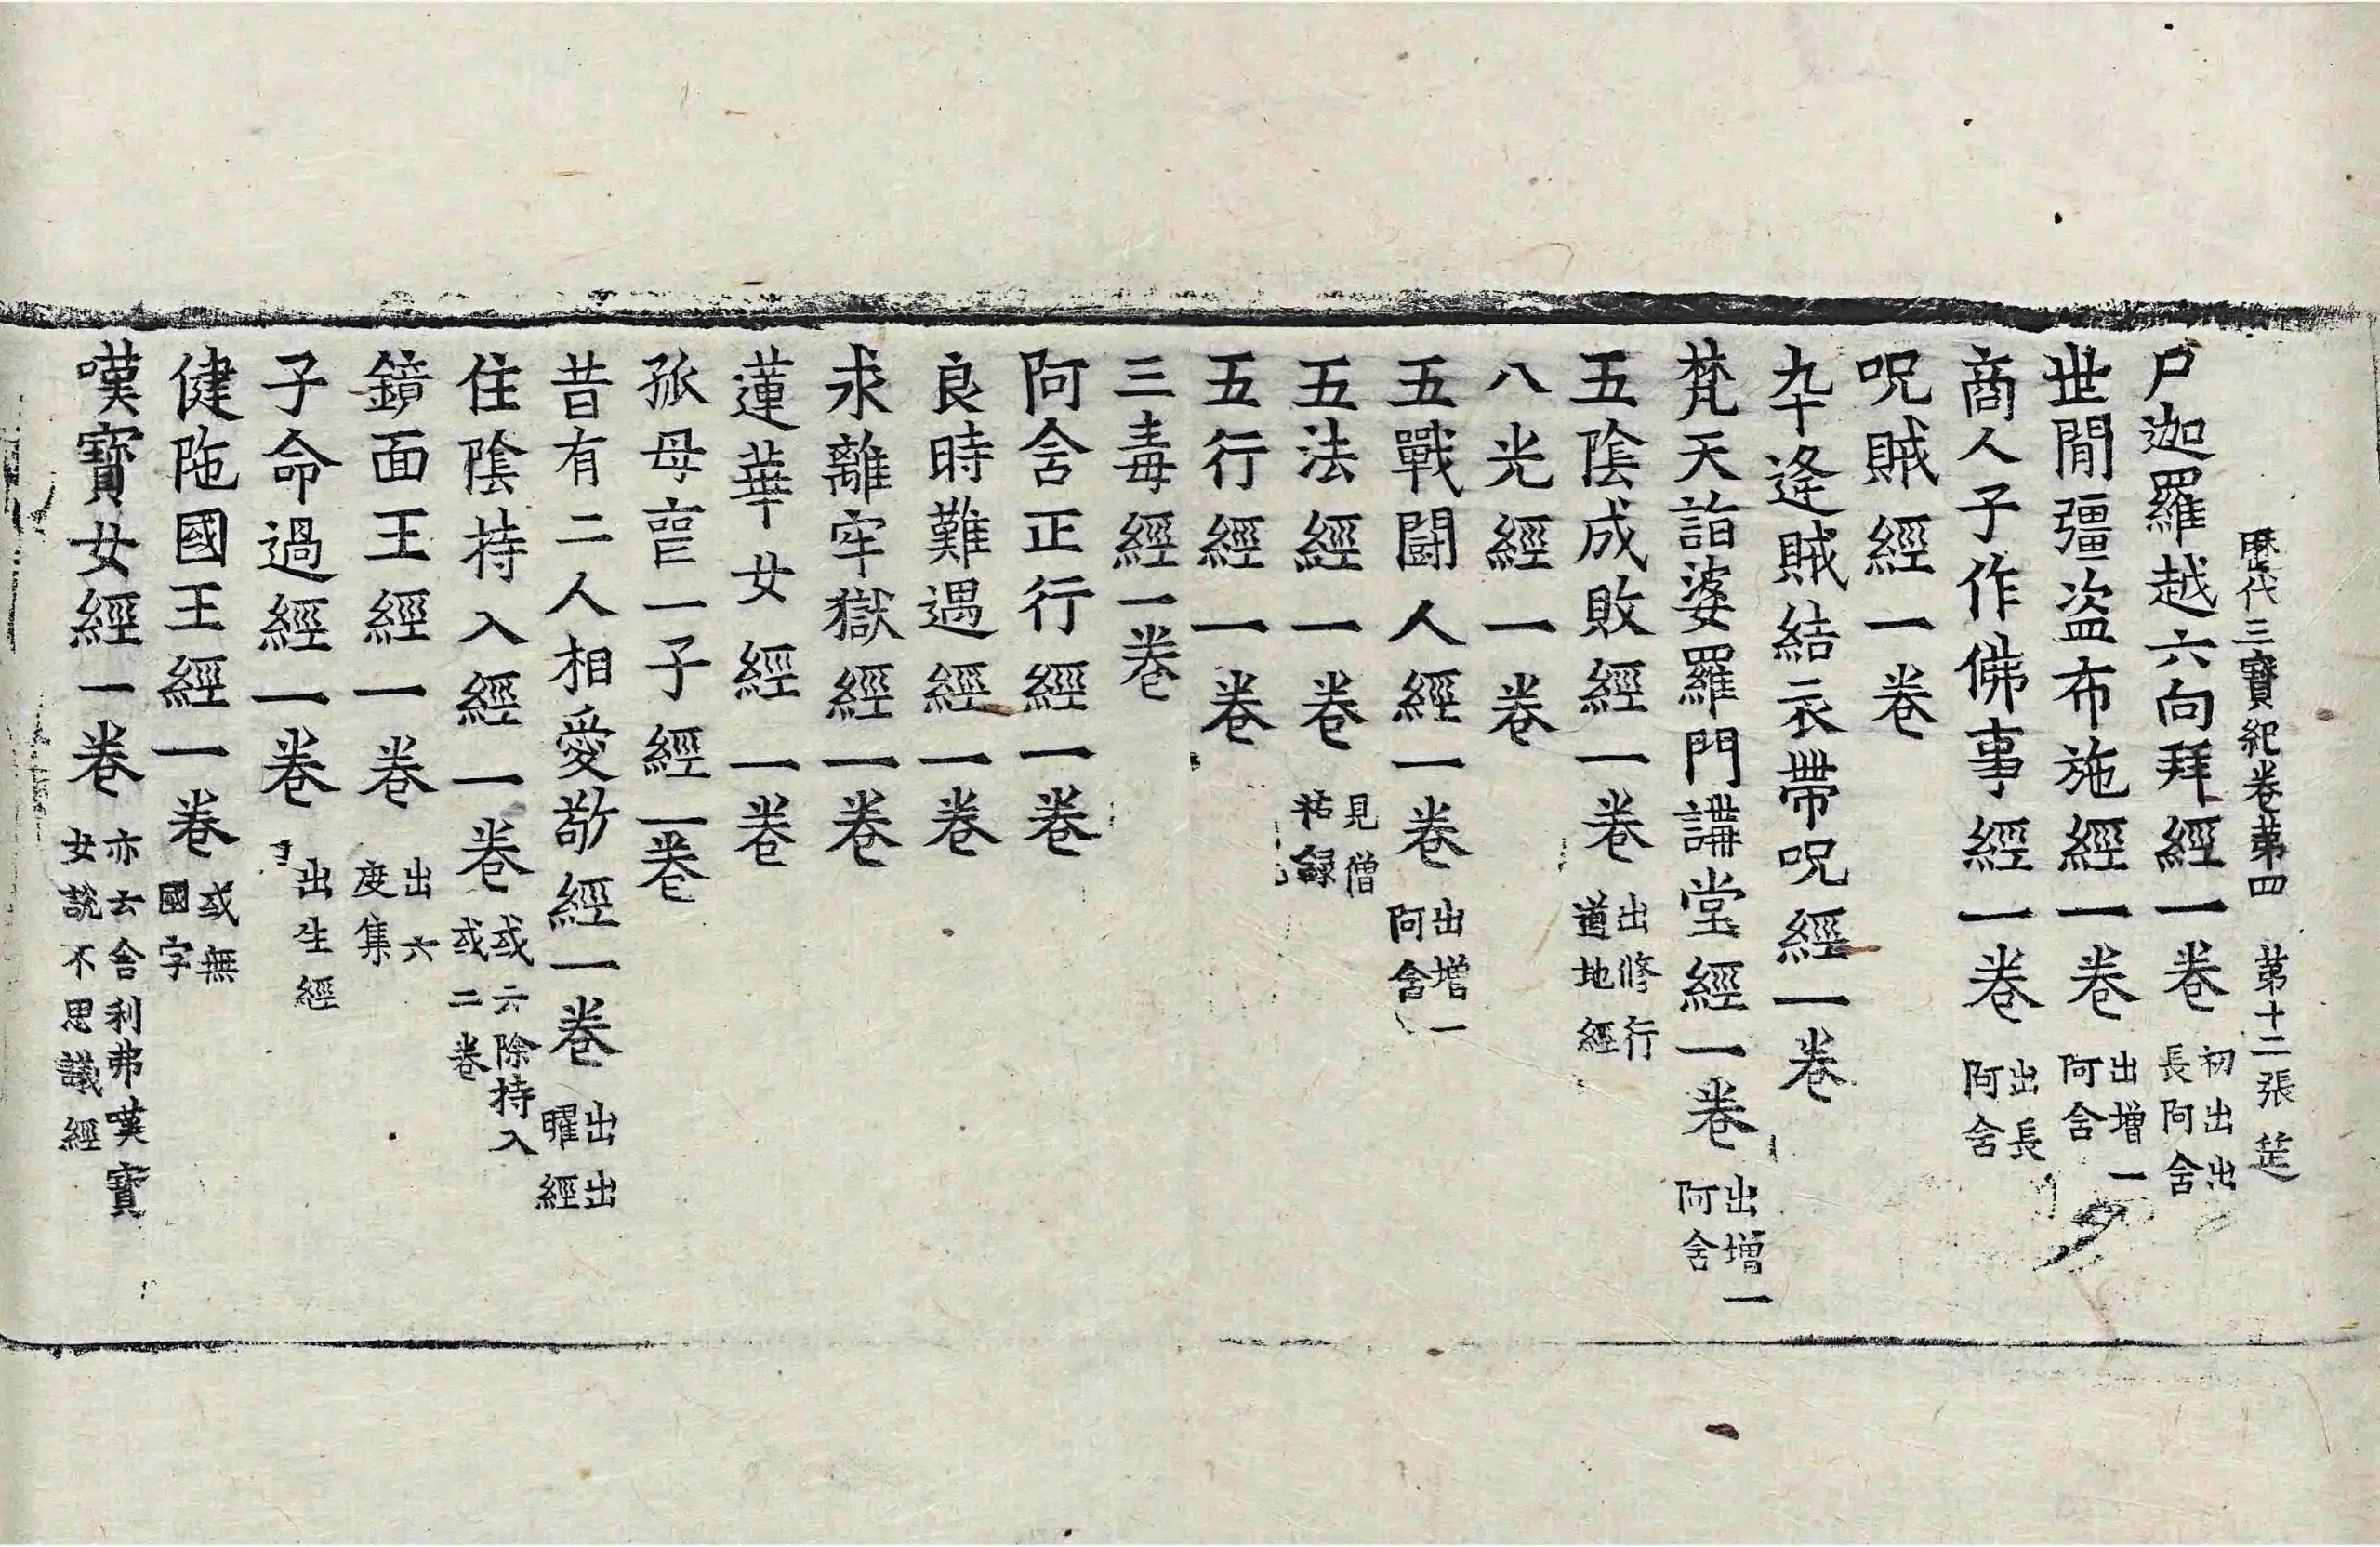 歷代三寶紀卷第四 第十二張 楚
尸迦羅越六向拜經一卷 初出出長阿含
世閒彊盜布施經一卷 出增一阿含
商人子作佛事經一卷 出長阿含
呪賊經一卷
卒逢賊結衣帶呪經一卷
梵天詣婆羅門講堂經一卷 出增一阿含
五陰成敗經一卷 出修行道地經
八光經一卷
五戰鬪人經一卷 出增一阿含
五法經一卷 見僧祐錄
五行經一卷
三毒經一卷
阿含正行經一卷
良時難遇經一卷
求離牢獄經一卷
蓮華女經一卷
孤母喪一子經一卷
昔有二人相愛敬經一卷 出出曜經
住陰持入經一卷 或云除持入或二卷
鏡面王經一卷 出六度集
子命過經一卷 出生經
健陁國王經一卷 或無國字
嘆寶女經一卷 亦云舍利弗嘆寶女說不思議經